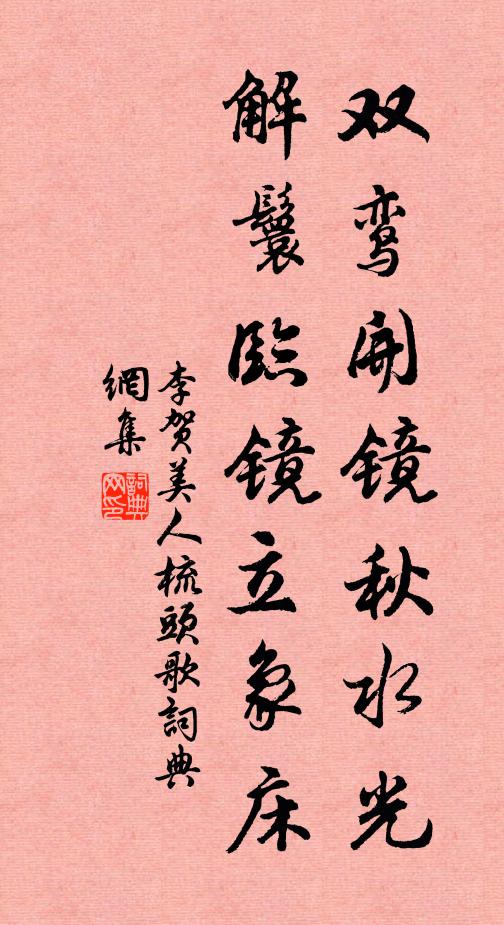 双鸾开镜秋水光
解鬟臨镜立象床
李贺美人梳頭歌詞典
網集
詞典
网印